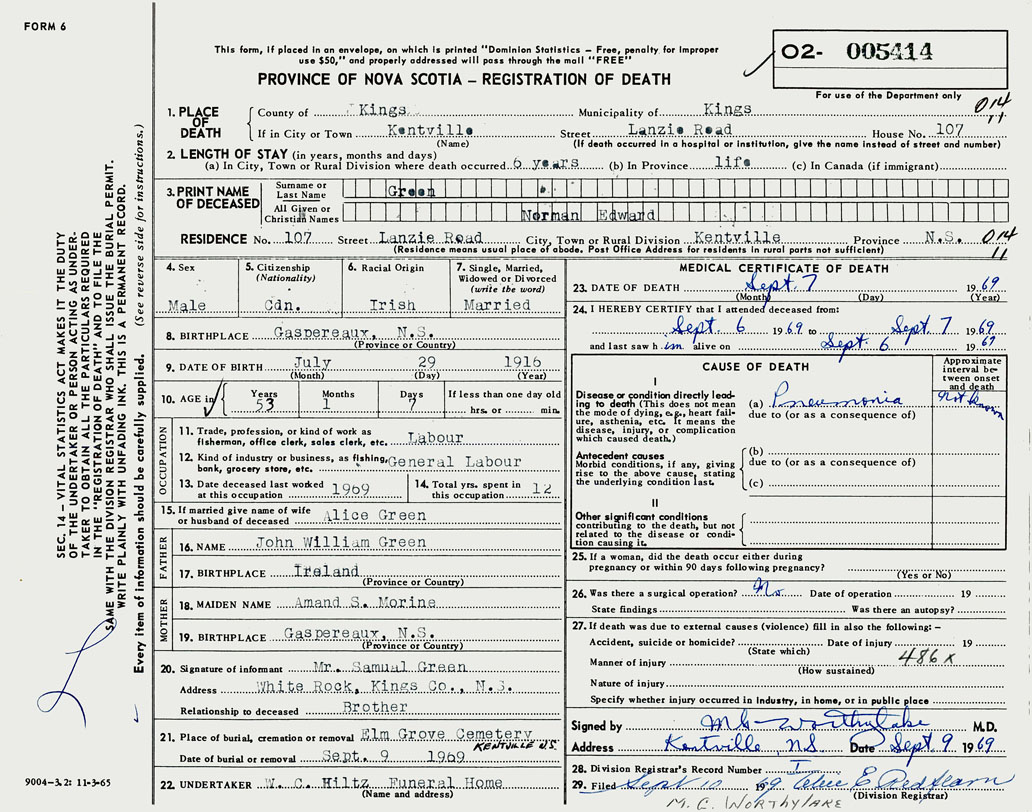 FORM 6
This form, if placed in an envelope, on which is printed "Dominion Statistics – Free, penalty for improper
use $50," and properly addressed will pass through the mail "FREE"
PROVINCE OF NOVA SCOTIA – REGISTRATION OF DEATH
02- 005414
For use of the Department only
014
11
1. PLACE OF DEATH
County of Kings Municipality of Kings
If in City or Town Kentville Street Lanzie Road House No. 107
(Name) (If death occurred in a hospital or institution, give the name instead of street and number)
2. LENGTH OF STAY (in years, months and days)
(a) In City, Town or Rural Division where death occurred 6 years (b) In Province life (c) In Canada (if immigrant)
3. PRINT NAME OF DECEASED
Surname or Last Name Green
All Given or Christian Names Norman Edward
RESIDENCE No. 107 Street Lanzie Road City, Town or Rural Division Kentville Province N.S. 014
11
(Residence means usual place of abode. Post Office Address for residents in rural parts not sufficient)
4. Sex
Male
5. Citizenship
(Nationality)
Cdn.
6. Racial Origin
Irish
7. Single, Married,
Widowed or Divorced
(write the word)
Married
8. BIRTHPLACE Gaspereaux, N.S.
(Province or Country)
9. DATE OF BIRTH July 29 1916
(Month) (Day) (Year)
10. AGE in Years Months Days If less than one day old
53 1 7 hrs. or min.
OCCUPATION
11. Trade, profession, or kind of work as
fisherman, office clerk, sales clerk, etc. Labour
12. Kind of industry or business, as fishing,
bank, grocery store, etc. General Labour
13. Date deceased last worked
at this occupation 1969
14. Total yrs. spent in
this occupation 12
15. If married give name of wife
or husband of deceased Alice Green
FATHER
16. NAME John William Green
17. BIRTHPLACE Ireland
(Province or Country)
MOTHER
18. MAIDEN NAME Amand S. Morine
19. BIRTHPLACE Gaspereaux, N.S.
(Province or Country)
20. Signature of informant Mr. Samual Green
Address White Rock, Kings Co., N.S.
Relationship to deceased Brother
21. Place of burial, cremation or removal Elm Grove Cemetery
KENTVILLE N.S.
Date of burial or removal Sept. 9 1969
22. UNDERTAKER W. C. Hiltz Funeral Home
(Name and address)
MEDICAL CERTIFICATE OF DEATH
23. DATE OF DEATH Sept. 7 1969
(Month) (Day) (Year)
24. I HEREBY CERTIFY that I attended deceased from:
Sept. 6 1969 to Sept. 7 1969
and last saw him alive on Sept 6 1969
CAUSE OF DEATH
Approximate
interval be-
tween onset
and death
I
Disease or condition directly lead-
ing to death (This does not mean
the mode of dying, e.g., heart fail-
ure, asthenia, etc. It means the
disease, injury, or complication
which caused death.)
(a) Pneumonia Not known
due to (or as a consequence of)
Antecedent causes
Morbid conditions, if any, giving
rise to the above cause, stating
the underlying condition last.
(b)
due to (or as a consequence of)
(c)
II
Other significant conditions
contributing to the death, but not
related to the disease or condi-
tion causing it.
25. If a woman, did the death occur either during
pregnancy or within 90 days following pregnancy?
(Yes or No)
26. Was there a surgical operation? No Date of operation 19
State findings Was there an autopsy?
27. If death was due to external causes (violence) fill in also the following: –
Accident, suicide or homicide? Date of injury 19
(State which)
Manner of injury 486 x
(How sustained)
Nature of injury
Specify whether injury occurred in industry, in home, or in public place
Signed by M C Worthylake M.D.
Address Kentville, NS Date Sept 9 1969
28. Division Registrar's Record Number
29. Filed Sept 10 1969
(Division Registrar)
M. C. WORTHYLAKE
SEC. 14 – VITAL STATISTICS ACT MAKES IT THE DUTY
OF THE UNDERTAKER OR PERSON ACTING AS UNDER-
TAKER TO OBTAIN ALL THE PARTICULARS REQUIRED
IN THE "REGISTRATION OF DEATH" AND TO FILE THE
SAME WITH THE DIVISION REGISTRAR WHO SHALL ISSUE THE BURIAL PERMIT.
WRITE PLAINLY WITH UNFADING INK. THIS IS A PERMANENT RECORD.
Every item of information should be carefully supplied. (See reverse side for instructions.)
9004-3.2: 11-3-65